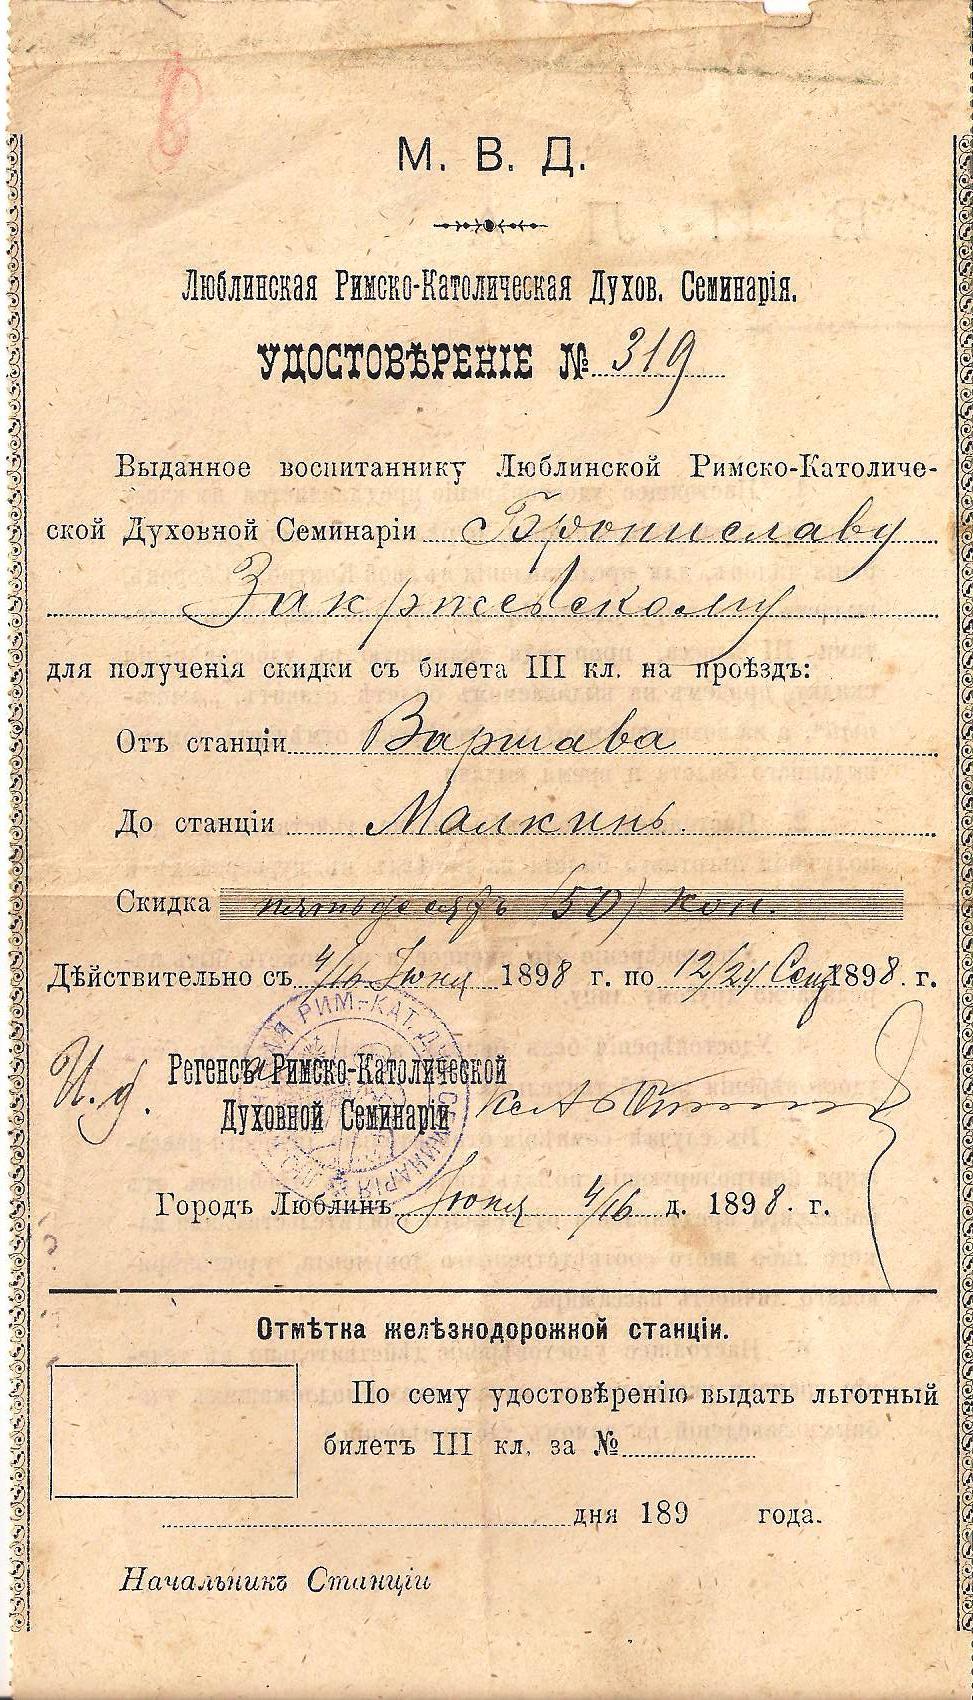 М. В. Д.
Люблинская Римско-Католическая Духов. Семинарія.
УДОСТОВѢРЕНІЕ № 319
Выданное воспитаннику Люблинской Римско-Католиче-
ской Духовной Семинаріи Брониславу
Закржевскому
для полученія скидки съ билета III кл. на проѣздъ:
Отъ станціи Варшава
До станціи Малкинь.
Скидка пятьдесятъ (50) коп.
Дѣйствительно съ 4/16 Іюня 1898 г. по 12/24 Сент 1898 г.
И. д. Регенсъ Римско-Католической
Духовной Семинаріи
Городъ Люблинъ Іюня 4/16 д. 1898 г.
Отмѣтка желѣзнодорожной станціи.
По сему удостовѣренію выдать льготный
билетъ III кл, за №
дня 189 года.
Начальникъ Станціи